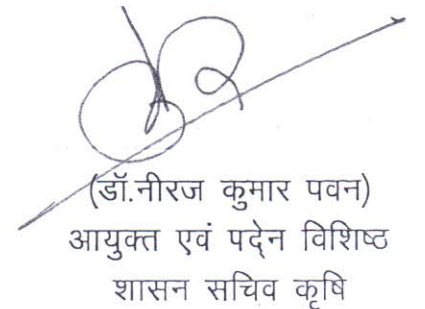 (डॉ.नीरज कुमार पवन)
आयुक्त एवं पदे्न विशिष्ठ
शासन सचिव कृषि